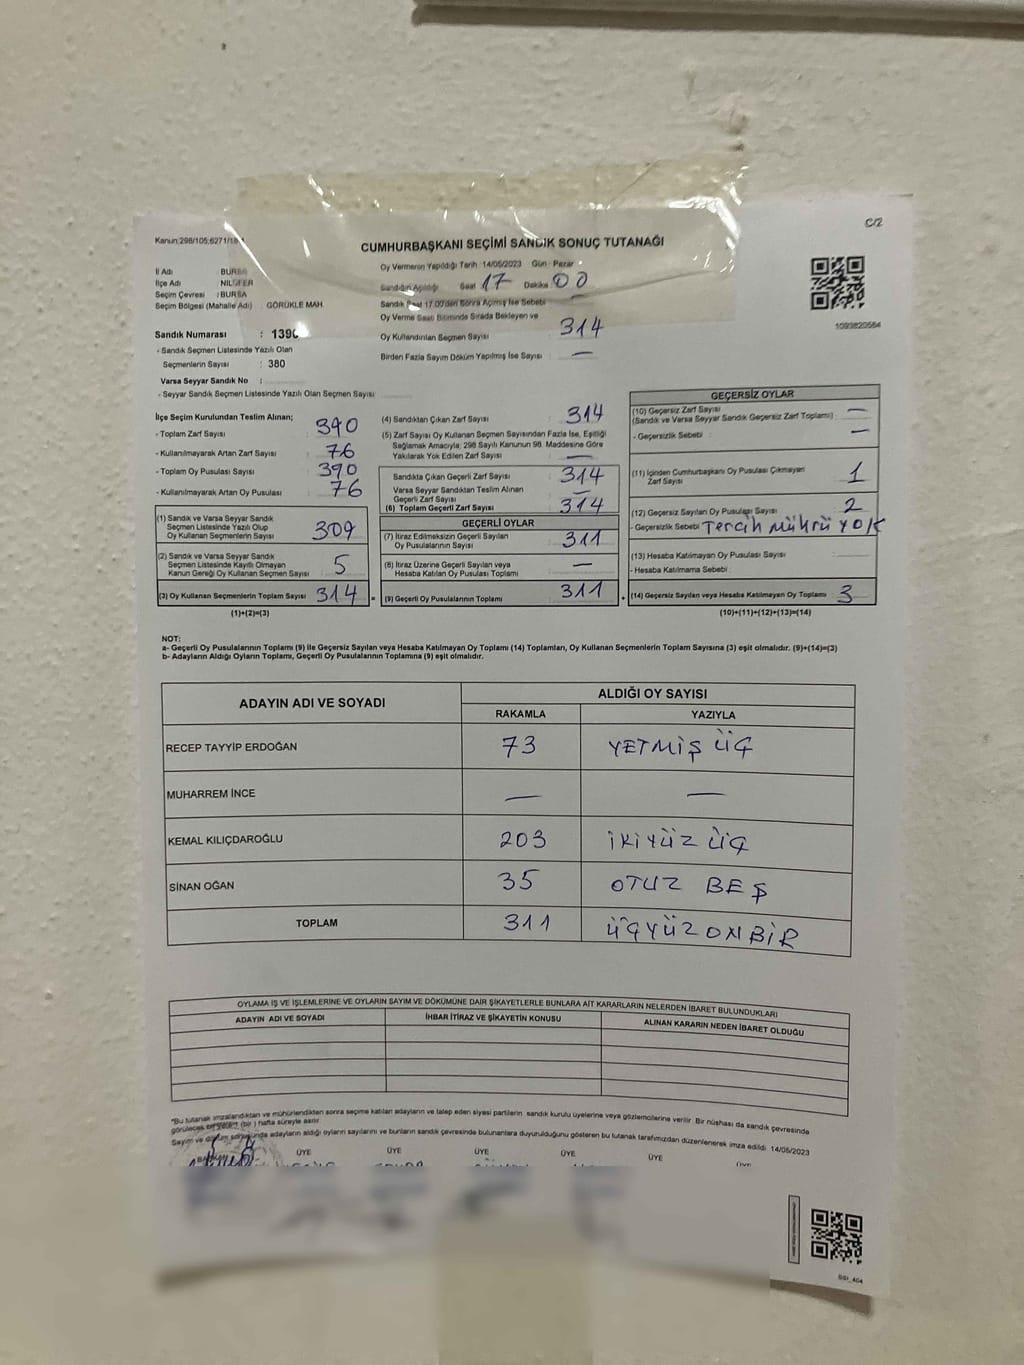 C/2
Kanun:298/105;6271/18
CUMHURBAŞKANI SEÇİMİ SANDIK SONUÇ TUTANAĞI
İl Adı BURSA
İlçe Adı NİLÜFER
Seçim Çevresi : BURSA
Seçim Bölgesi (Mahalle Adı) : GÖRÜKLE MAH.
Sandık Numarası : 1390
- Sandık Seçmen Listesinde Yazılı Olan
Seçmenlerin Sayısı : 380
Varsa Seyyar Sandık No :
- Seyyar Sandık Seçmen Listesinde Yazılı Olan Seçmen Sayısı
Oy Vermenin Yapıldığı Tarih : 14/05/2023 Gün : Pazar
Sandığın Açıldığı Saat 17 Dakika 00
Sandık Saat 17.00'den Sonra Açılmış İse Sebebi
Oy Verme Saati Bitiminde Sırada Bekleyen ve
Oy Kullandırılan Seçmen Sayısı 314
Birden Fazla Sayım Döküm Yapılmış İse Sayısı —
1093820584
İlçe Seçim Kurulundan Teslim Alınan;
- Toplam Zarf Sayısı 390
- Kullanılmayarak Artan Zarf Sayısı 76
- Toplam Oy Pusulası Sayısı 390
- Kullanılmayarak Artan Oy Pusulası 76
(1) Sandık ve Varsa Seyyar Sandık
Seçmen Listesinde Yazılı Olup
Oy Kullanan Seçmenlerin Sayısı 309
(2) Sandık ve Varsa Seyyar Sandık
Seçmen Listesinde Kayıtlı Olmayan
Kanun Gereği Oy Kullanan Seçmen Sayısı 5
(3) Oy Kullanan Seçmenlerin Toplam Sayısı 314 =
(1)+(2)=(3)
(4) Sandıktan Çıkan Zarf Sayısı 314
(5) Zarf Sayısı Oy Kullanan Seçmen Sayısından Fazla İse, Eşitliği
Sağlamak Amacıyla; 298 Sayılı Kanunun 98. Maddesine Göre
Yakılarak Yok Edilen Zarf Sayısı —
Sandıkta Çıkan Geçerli Zarf Sayısı 314
Varsa Seyyar Sandıktan Teslim Alınan
Geçerli Zarf Sayısı —
(6) Toplam Geçerli Zarf Sayısı 314
GEÇERLİ OYLAR
(7) İtiraz Edilmeksizin Geçerli Sayılan
Oy Pusulalarının Sayısı 311
(8) İtiraz Üzerine Geçerli Sayılan veya
Hesaba Katılan Oy Pusulası Toplamı —
(9) Geçerli Oy Pusulalarının Toplamı 311 +
GEÇERSİZ OYLAR
(10) Geçersiz Zarf Sayısı —
(Sandık ve Varsa Seyyar Sandık Geçersiz Zarf Toplamı) :
- Geçersizlik Sebebi : —
(11) İçinden Cumhurbaşkanı Oy Pusulası Çıkmayan
Zarf Sayısı 1
(12) Geçersiz Sayılan Oy Pusulası Sayısı 2
- Geçersizlik Sebebi Tercih mührü YOK
(13) Hesaba Katılmayan Oy Pusulası Sayısı
- Hesaba Katılmama Sebebi :
(14) Geçersiz Sayılan veya Hesaba Katılmayan Oy Toplamı 3
(10)+(11)+(12)+(13)=(14)
NOT:
a- Geçerli Oy Pusulalarının Toplamı (9) ile Geçersiz Sayılan veya Hesaba Katılmayan Oy Toplamı (14) Toplamları, Oy Kullanan Seçmenlerin Toplam Sayısına (3) eşit olmalıdır. (9)+(14)=(3)
b- Adayların Aldığı Oyların Toplamı, Geçerli Oy Pusulalarının Toplamına (9) eşit olmalıdır.
ADAYIN ADI VE SOYADI ALDIĞI OY SAYISI
RAKAMLA YAZIYLA
RECEP TAYYİP ERDOĞAN 73 YETMİŞ ÜÇ
MUHARREM İNCE — —
KEMAL KILIÇDAROĞLU 203 İKİYÜZ ÜÇ
SİNAN OĞAN 35 OTUZ BEŞ
TOPLAM 311 ÜÇYÜZONBİR
OYLAMA İŞ VE İŞLEMLERİNE VE OYLARIN SAYIM VE DÖKÜMÜNE DAİR ŞİKAYETLERLE BUNLARA AİT KARARLARIN NELERDEN İBARET BULUNDUKLARI
ADAYIN ADI VE SOYADI İHBAR İTİRAZ VE ŞİKAYETİN KONUSU ALINAN KARARIN NEDEN İBARET OLDUĞU
*Bu tutanak imzalandıktan ve mühürlendikten sonra seçime katılan adayların ve talep eden siyasi partilerin sandık kurulu üyelerine veya gözlemcilerine verilir. Bir nüshası da sandık çevresinde
görülecek bir yere 1 (bir) hafta süreyle asılır.
Sayım ve döküm sonucunda adayların aldığı oyların sayılarını ve bunların sandık çevresinde bulunanlara duyurulduğunu gösteren bu tutanak tarafımızdan düzenlenerek imza edildi. 14/05/2023
BAŞKAN ÜYE ÜYE ÜYE ÜYE ÜYE ÜYE
SSI_404